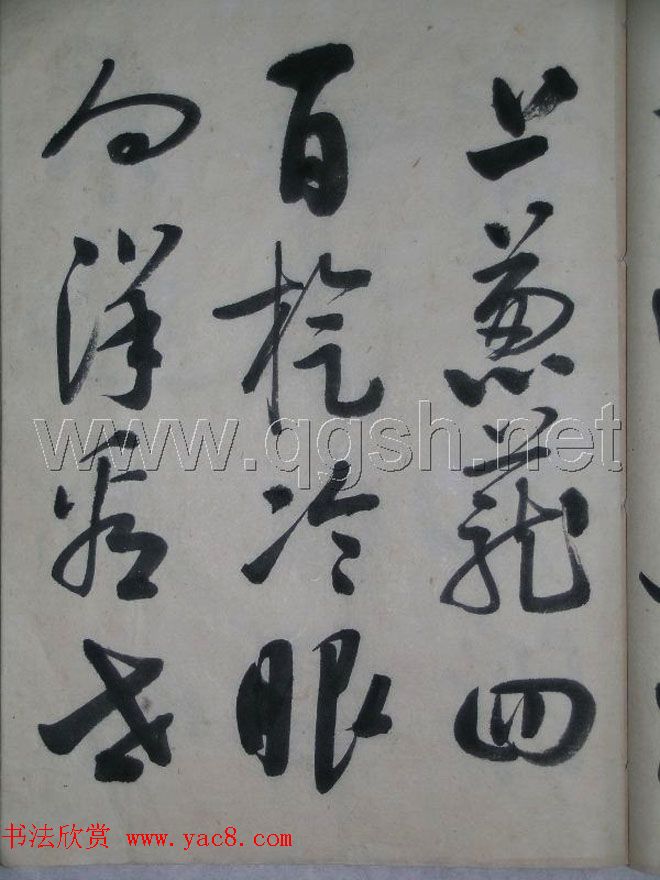 上葱茏四
百旋冷眼
向洋看世
www.qgsh.net
书法欣赏 www.yac8.com